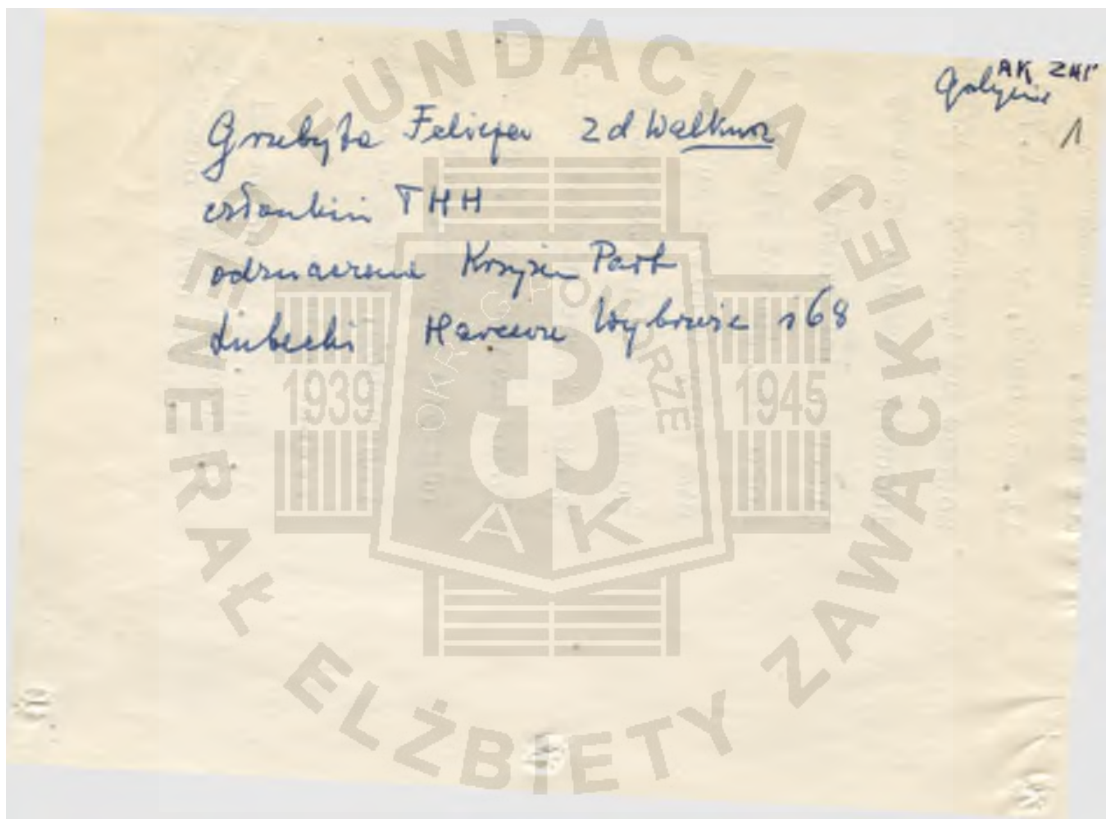 AK ZHP
Gdynia
1
Grzebyta Felicja zd Walkusz
członkini THH
odznaczona Krzyżem Part
Lubecki Harcerze Wybrzeża s 68
FUNDACJA
GENERAŁ ELŻBIETY ZAWACKIEJ
OKRĘG POMORZE
1939 1945
AK